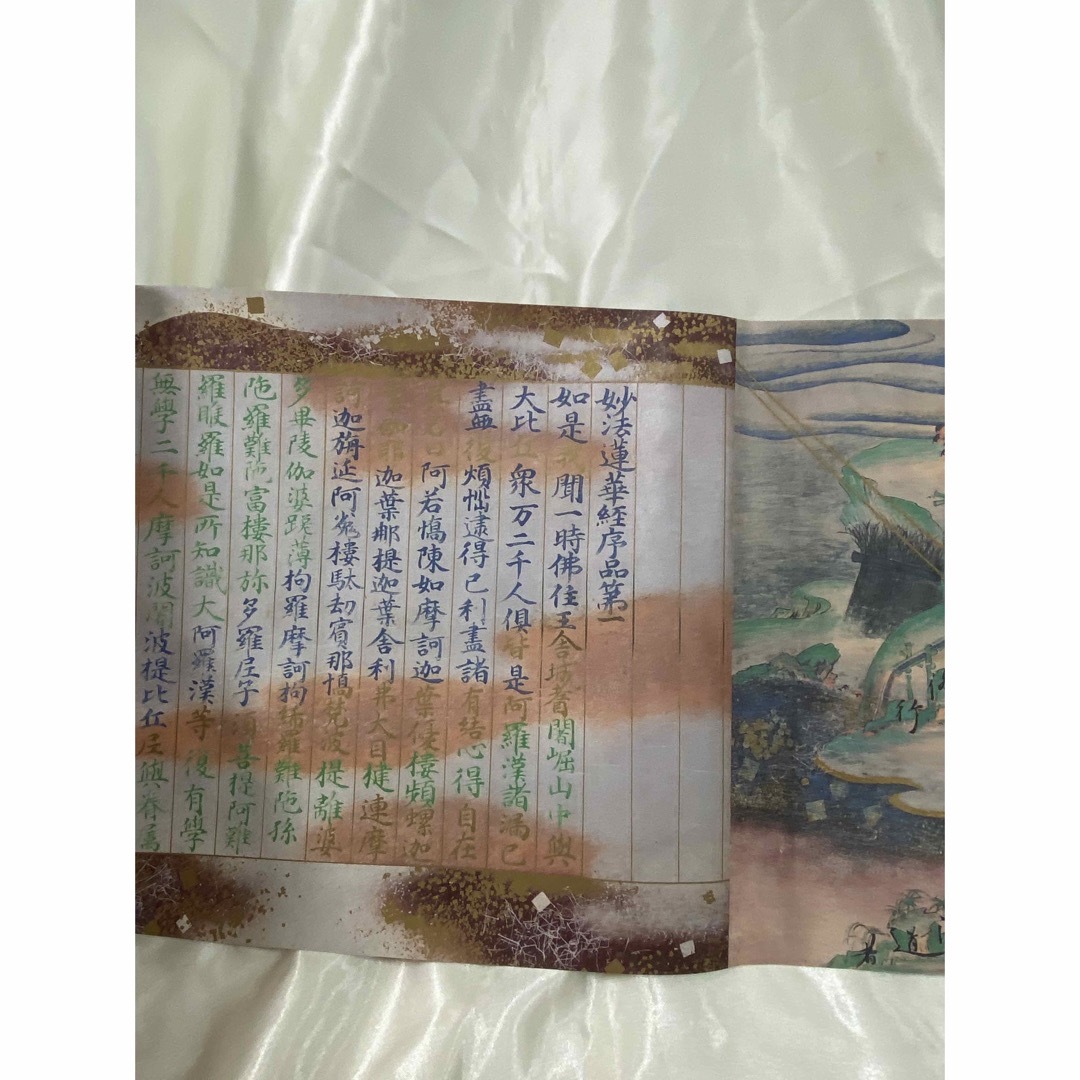 行
道
者
妙法蓮華経序品第一
如是我聞一時佛住王舎城耆闍崛山中與
大比丘衆万二千人俱皆是阿羅漢諸漏已
盡無復煩惱逮得己利盡諸有結心得自在
其名曰阿若憍陳如摩訶迦葉優樓頻螺迦
迦葉那提迦葉舎利弗大目揵連摩
訶迦旃延阿㝹樓駄劫賓那憍梵波提離婆
多畢陵伽婆蹉薄拘羅摩訶拘絺羅難陁孫
陁羅難陁富樓那弥多羅尼子須菩提阿難
羅睺羅如是所知識大阿羅漢等復有學
無學二千人摩訶波闍波提比丘尼與眷属